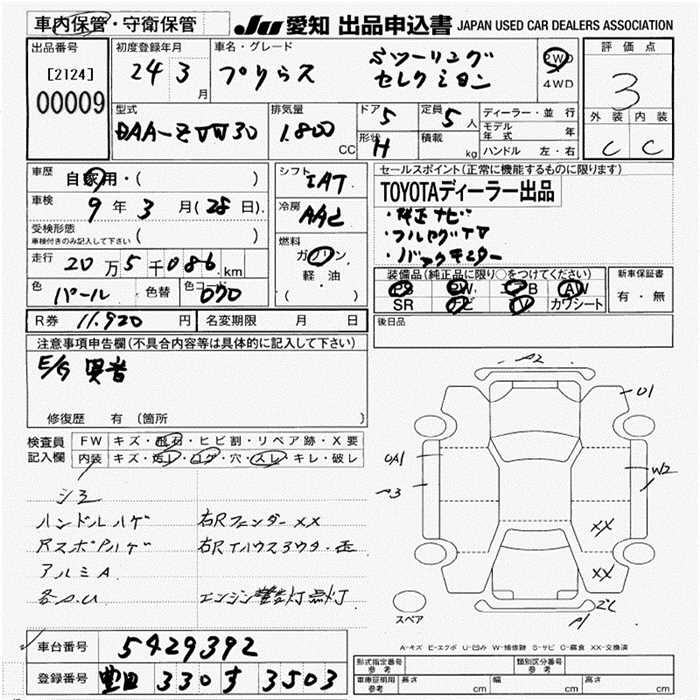 車内保管・守衛保管
JU 愛知 出品申込書 JAPAN USED CAR DEALERS ASSOCIATION
出品番号 初度登録年月 車名・グレード 評価点
[2124] 24年 3月 プリウス Sツーリング 2WD 3
00009 セレクション 4WD
外装 内装
型式 排気量 ドア 5 定員 5人 ディーラー・並行
DAA-ZVW30 1.800 CC 形状 H 積載 kg モデル年式 年 C C
ハンドル 左・右
車歴 自家用・( ) シフト IAT セールスポイント(正常に機能するものに限ります)
TOYOTAディーラー出品
車検 9年 3月(28日). 冷房 AAC ・純正ナビ
受検形態 車検付きのみ記入して下さい ( ) ・フルセグTV
燃料 ガソリン・軽・油 ( ) ・バックモニター
走行 20万5千086km
装備品(純正品に限り○をつけてください) 新車保証書
色 パール 色替 色コード 070 PS PW エアB AW 有・無
SR ナビ TV カワシート
R券 11.920円 名変期限 月 日 後日品
注意事項申告欄(不具合内容等は具体的に記入して下さい)
E/G 異音
修復歴 有 (箇所 )
検査員記入欄 FW キズ・飛石・ヒビ割・リペア跡・X要
内装 キズ・汚レ・コゲ・穴・スレ・キレ・破レ
A2
01
UA1
A3
W2
XX
XX
A1
シミ
ハンドルハゲ 右Rフェンダー XX
アルミA
各A.U エンジン警告灯点灯
スペア
A-キズ E-エクボ U-凹み W-補修跡 S-サビ C-腐食 XX-交換済
車台番号 5429392
登録番号 豊田 330す3503
形式指定番号 参考 類別区分番号 参考
車庫証明用 参考 長さ cm 幅 cm 高さ cm